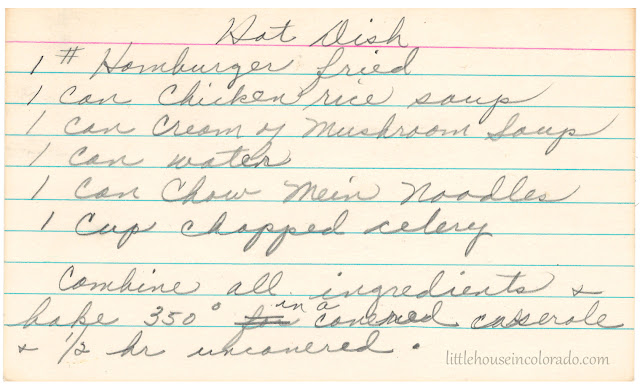 Hot Dish
1 # Hamburger fried
1 can chicken rice soup
1 can cream of Mushroom Soup
1 can water
1 can Chow Mein Noodles
1 cup chopped celery
Combine all ingredients &
bake 350° for in a covered casserole
& 1/2 hr uncovered.
littlehouseincolorado.com